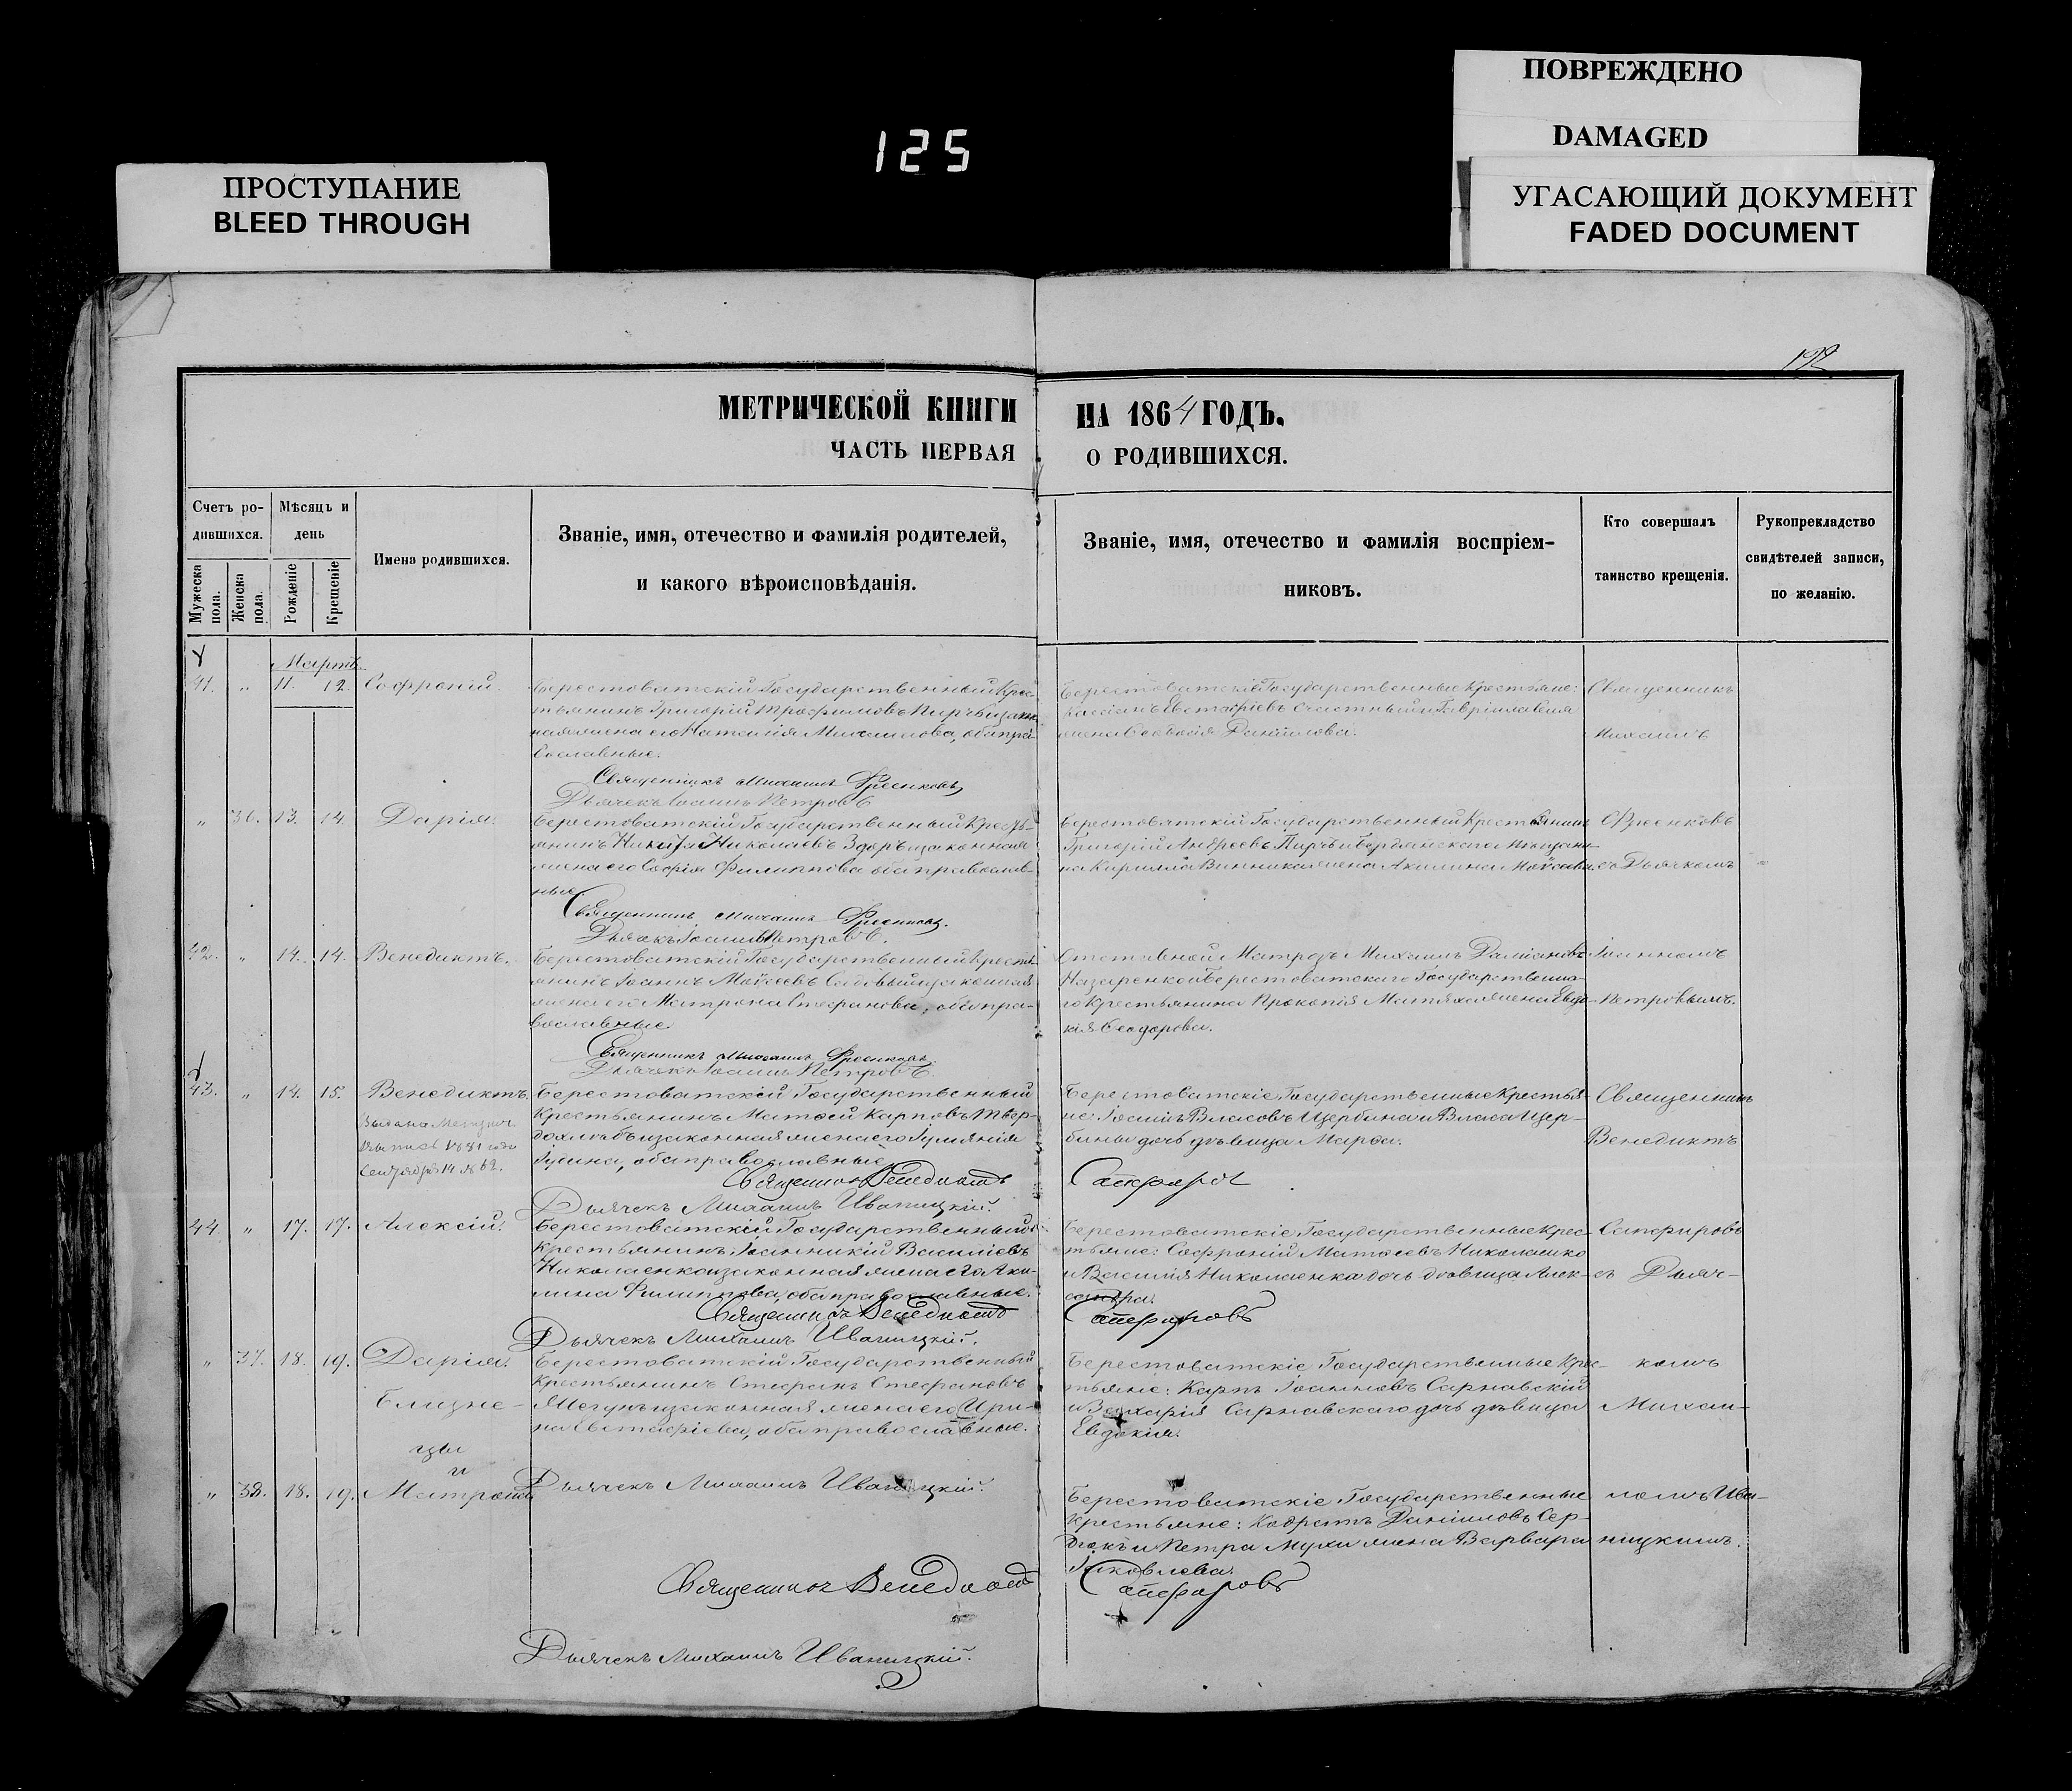 125
ПРОСТУПАНИЕ
BLEED THROUGH
ПОВРЕЖДЕНО
DAMAGED
УГАСАЮЩИЙ ДОКУМЕНТ
FADED DOCUMENT
192
МЕТРИЧЕСКОЙ КНИГИ НА 1864 ГОДЪ.
ЧАСТЬ ПЕРВАЯ О РОДИВШИХСЯ.
Счетъ ро-
дившихся.
Мужеска пола.
Женска пола.
Мѣсяцъ и
день
Рожденіе
Крещеніе
Имена родившихся.
Званіе, имя, отечество и фамилія родителей,
и какого вѣроисповѣданія.
Званіе, имя, отечество и фамилія воспріем-
никовъ.
Кто совершалъ
таинство крещенія.
Рукоприкладство
свидѣтелей записи,
по желанію.
Мартъ
41. " 11. 12. Софроній.
Берестоватскій Государственный Крес-
тьянинъ Григорій Трофимовъ
жена его Наталія Михайлова, оба пра-
вославные.
Священникъ Михаилъ
Дьячекъ Іоаннъ Петровъ
Берестоватскіе Государственные Крестьяне:
Кассіанъ Евстафіевъ Счастный и Гавріила
жена Данилова.
Священникъ
Михаилъ
" 36. 13. 14. Дарія.
Берестоватскій Государственный Кресть-
янинъ Николаевъ законная
жена его Софія Филиппова оба православ-
ные.
Священникъ Михаилъ
Дьячекъ Іоаннъ Петровъ.
Берестоватскій Государственный Крестьянинъ
Григорій Андреевъ и Бердянскаго мѣщани-
на Кирилла Винника жена Акилина
съ Дьячкомъ
42. " 14. 14. Венедиктъ.
Берестоватскій Государственный Кресть-
янинъ Іоаннъ Моѵсеевъ законная
жена его Матрона Стефанова, оба пра-
вославные.
Священникъ Михаилъ
Дьячекъ Іоаннъ Петровъ.
Отставной Матрозъ Михаилъ Даміановъ
Назаренко и Берестоватскаго Государственна-
го Крестьянина Прокопія жена Евдо-
кія Ѳеодорова.
Іоанномъ
Петровымъ.
43. " 14. 15. Венедиктъ.
Выдана
1881 года
Сентября 14 № 62.
Берестоватскій Государственный
Крестьянинъ Матѳей Карповъ Твер-
дохлѣбъ и законная жена его Іуліанія
оба православные
Священникъ Венедиктъ
Дьячекъ Михаилъ Иваницкій.
Берестоватскіе Государственные Крестья-
не: Власовъ Щербина и Власа Щер-
бины дочь дѣвица Марѳа.
Сапфировъ
Священникъ
Венедиктъ
44. " 17. 17. Алексій.
Берестоватскій Государственный
Крестьянинъ Іоанникій Василіевъ
Николаенко и законная жена его Аки-
лина Филиппова, оба православные.
Священникъ Венедиктъ
Дьячекъ Михаилъ Иваницкій.
Берестоватскіе Государственные Крес-
тьяне: Софроній Матѳеевъ Николаенко
и Василія Николаенка дочь дѣвица Алек-
сандра.
Сапфировъ
Сапфировъ
съ Дьяч-
" 37. 18. 19. Дарія.
Близне-
цы
и
Берестоватскій Государственный
Крестьянинъ Стефанъ Стефановъ
и законная жена его Ири-
на Евстафіева, оба православные.
Берестоватскіе Государственные Крес-
тьяне: Карпъ Іоанновъ Сарнавскій
и Захарія Сарнавскаго дочь дѣвица
Евдокія.
комъ
Михаи-
" 38. 18. 19. Матрона
Дьячекъ Михаилъ Иваницкій.
Берестоватскіе Государственные
Крестьяне: Кодратъ Даніиловъ Сер-
дюкъ и Петра Мухи жена Варвара
Яковлева.
Сапфировъ
ломъ Ива-
ницкимъ.
Священникъ Венедиктъ
Дьячекъ Михаилъ Иваницкій.